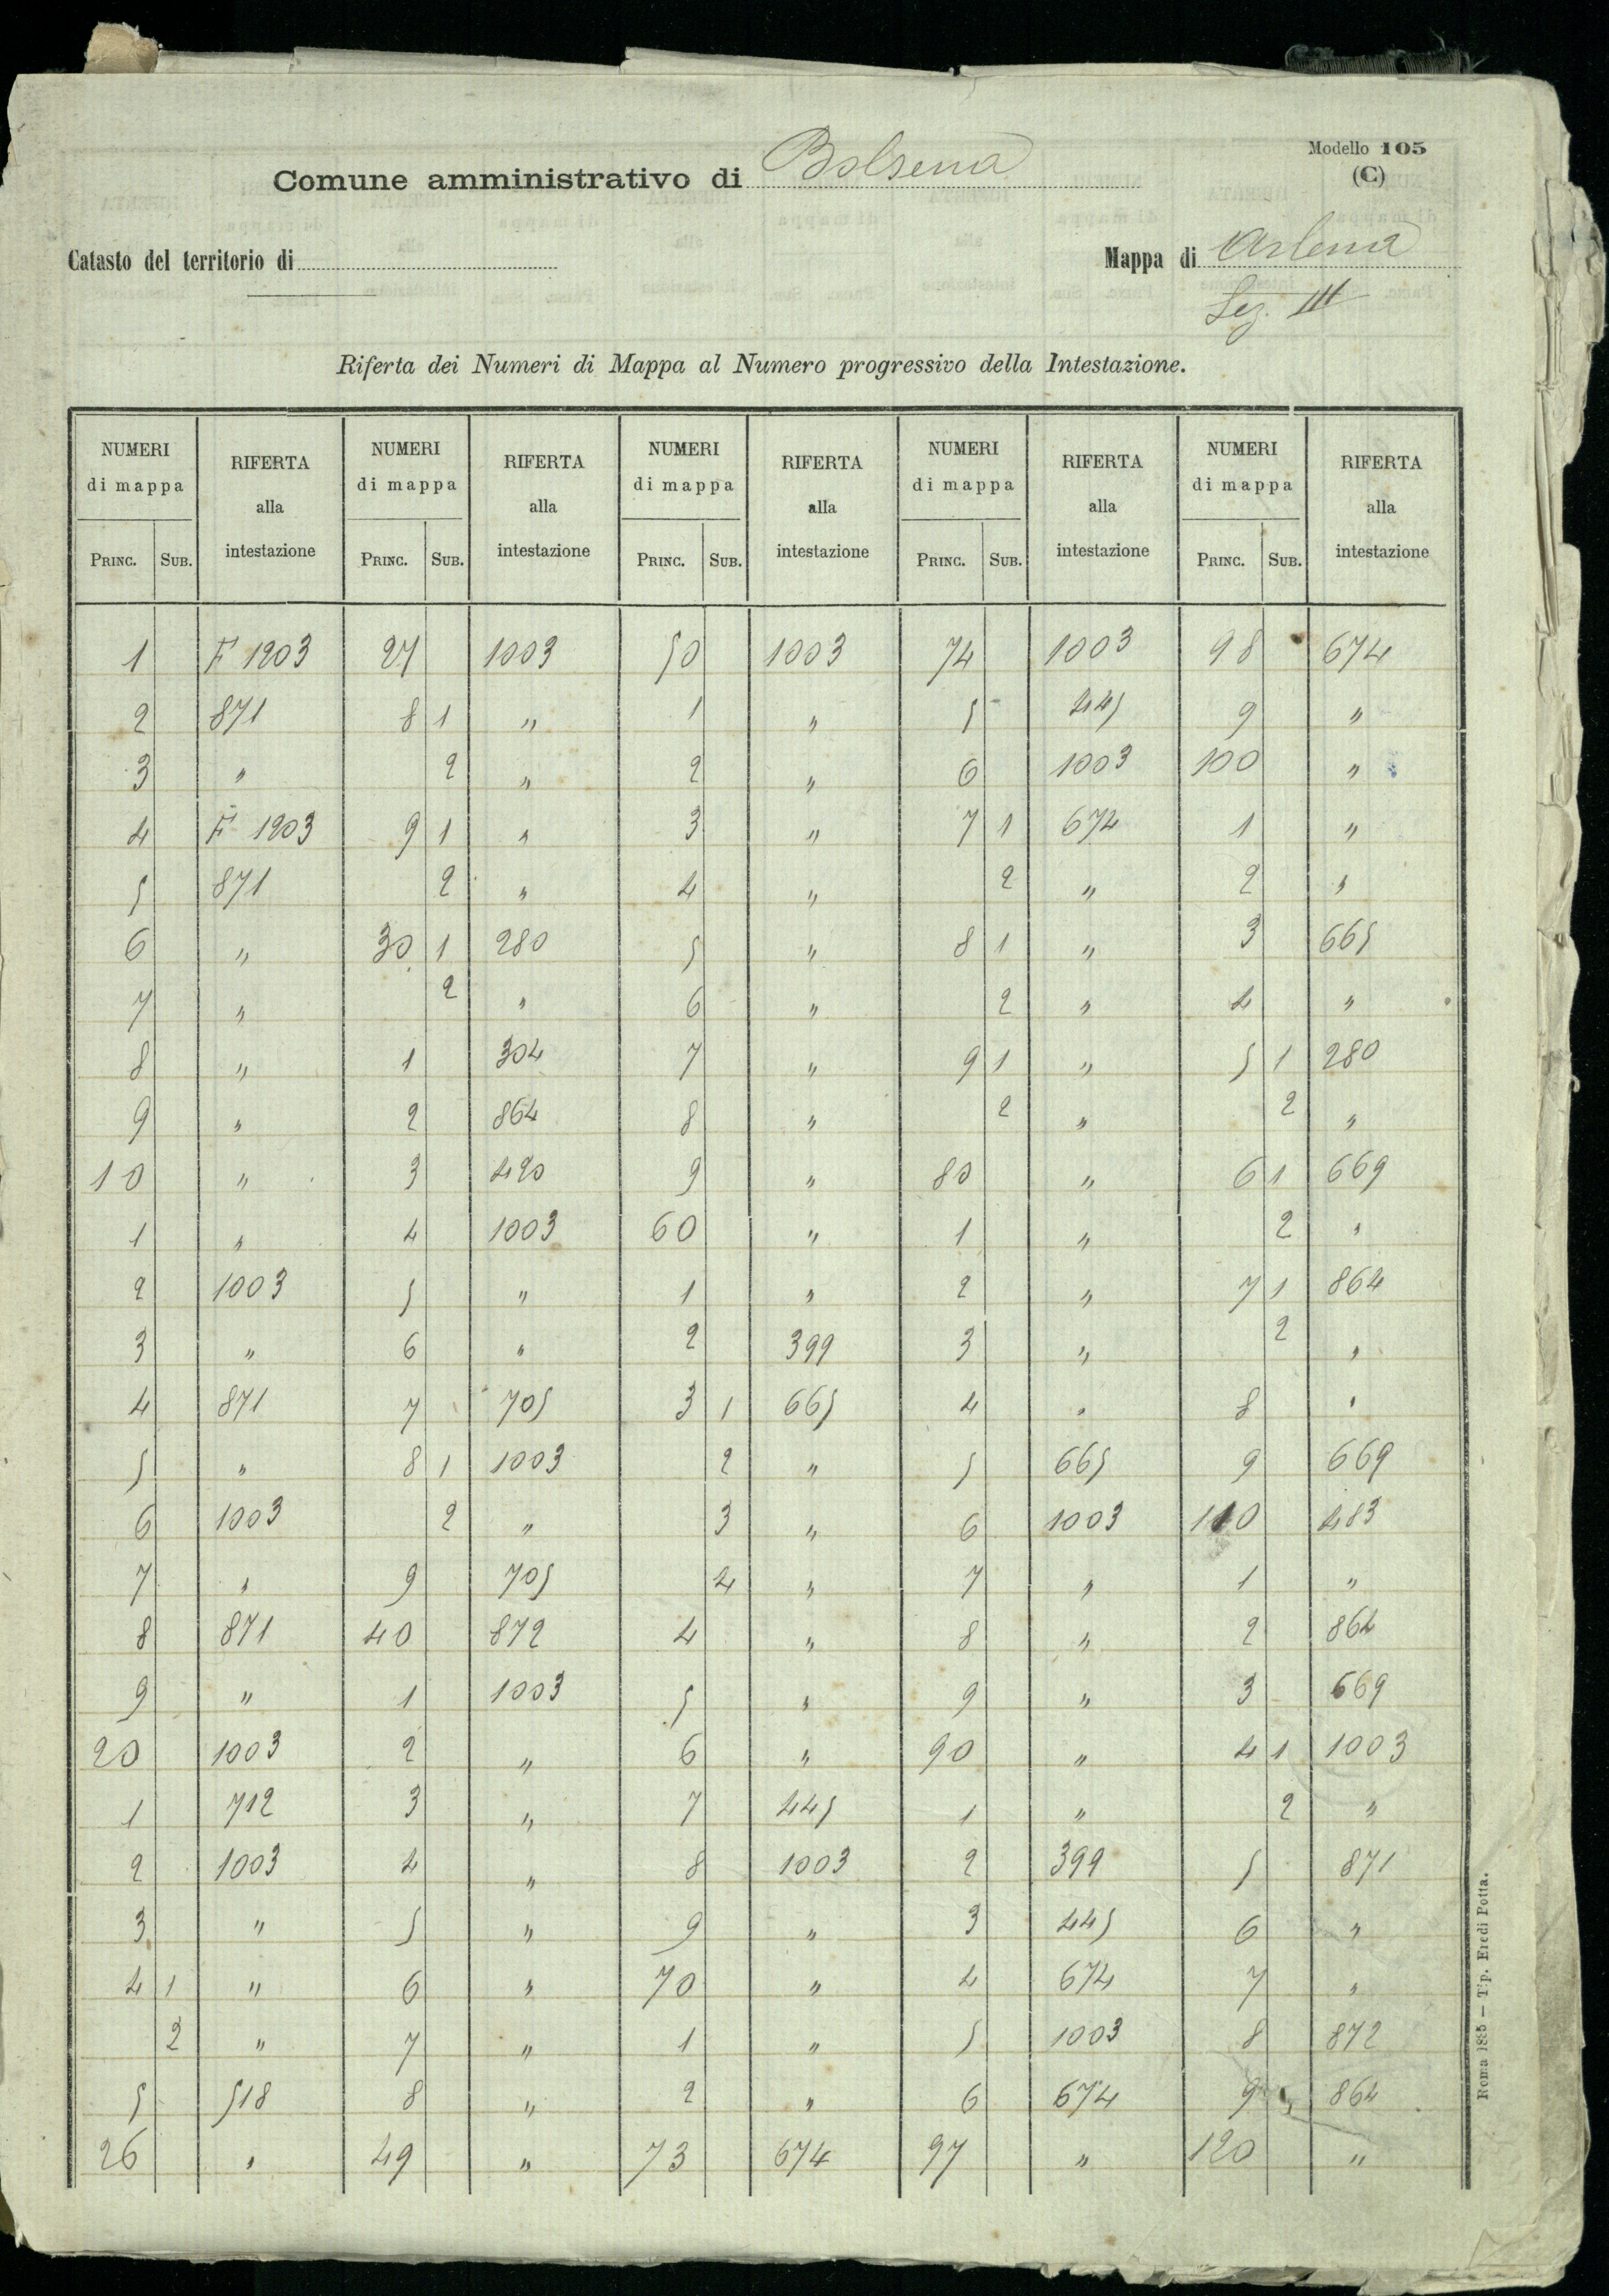 Modello 105
(C)
Comune amministrativo di Bolsena
Catasto del territorio di
Mappa di Arlena
Sez. III
Riferta dei Numeri di Mappa al Numero progressivo della Intestazione.
NUMERI di mappa RIFERTA alla intestazione NUMERI di mappa RIFERTA alla intestazione NUMERI di mappa RIFERTA alla intestazione NUMERI di mappa RIFERTA alla intestazione NUMERI di mappa RIFERTA alla intestazione
PRINC. SUB. PRINC. SUB. PRINC. SUB. PRINC. SUB. PRINC. SUB.
1 F 1203 27 1003 50 1003 74 1003 98 674
2 871 8 1 " 1 " 5 445 9 "
3 " 2 " 2 " 6 1003 100 "
4 F 1203 9 1 " 3 " 7 1 674 1 "
5 871 2 " 4 " 2 " 2 "
6 " 30 1 280 5 " 8 1 " 3 665
7 " 2 " 6 " 2 " 4 "
8 " 1 304 7 " 9 1 " 5 1 280
9 " 2 864 8 " 2 " 2 "
10 " 3 420 9 " 80 " 6 1 669
1 " 4 1003 60 " 1 " 2 "
2 1003 5 " 1 " 2 " 7 1 864
3 " 6 " 2 399 3 " 2 "
4 871 7 705 3 1 665 4 " 8 "
5 " 8 1 1003 2 " 5 665 9 669
6 1003 2 " 3 " 6 1003 110 483
7 " 9 705 4 " 7 " 1 "
8 871 40 872 4 " 8 " 2 864
9 " 1 1003 5 " 9 " 3 669
20 1003 2 " 6 " 90 " 4 1 1003
1 712 3 " 7 445 1 " 2 "
2 1003 4 " 8 1003 2 399 5 871
3 " 5 " 9 " 3 445 6 "
4 1 " 6 " 70 " 4 674 7 "
2 " 7 " 1 " 5 1003 8 872
5 518 8 " 2 " 6 674 9 864
26 " 49 " 73 674 97 " 120 "
Roma 1885 — Tip. Eredi Potta.